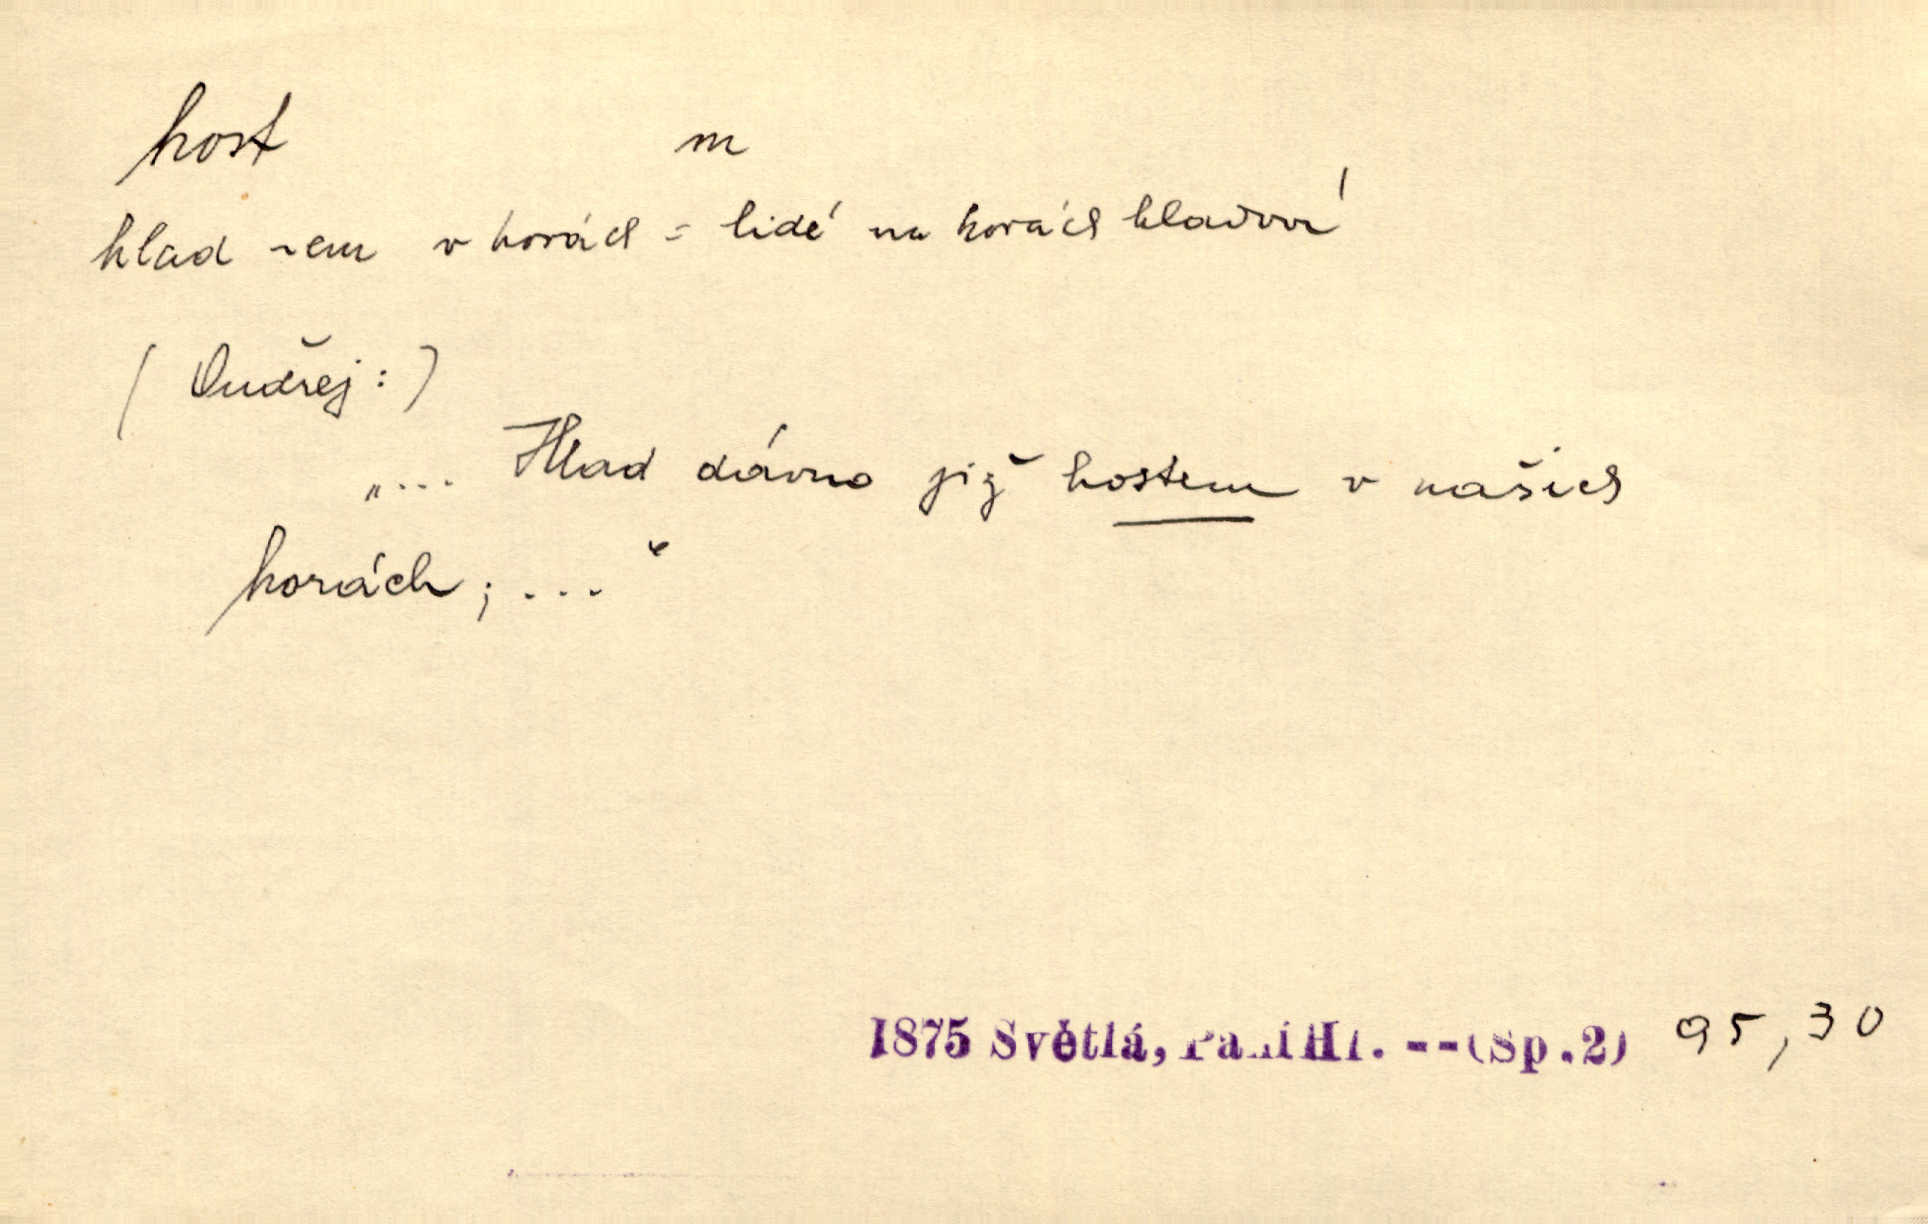 host m
hlad ~em v horách = lidé na horách hladoví
(Ondřej:)
„... Hlad dávno již hostem v našich
horách; ...“
1875 Světlá, Paní Hl. -- (Sp.2) 95,30